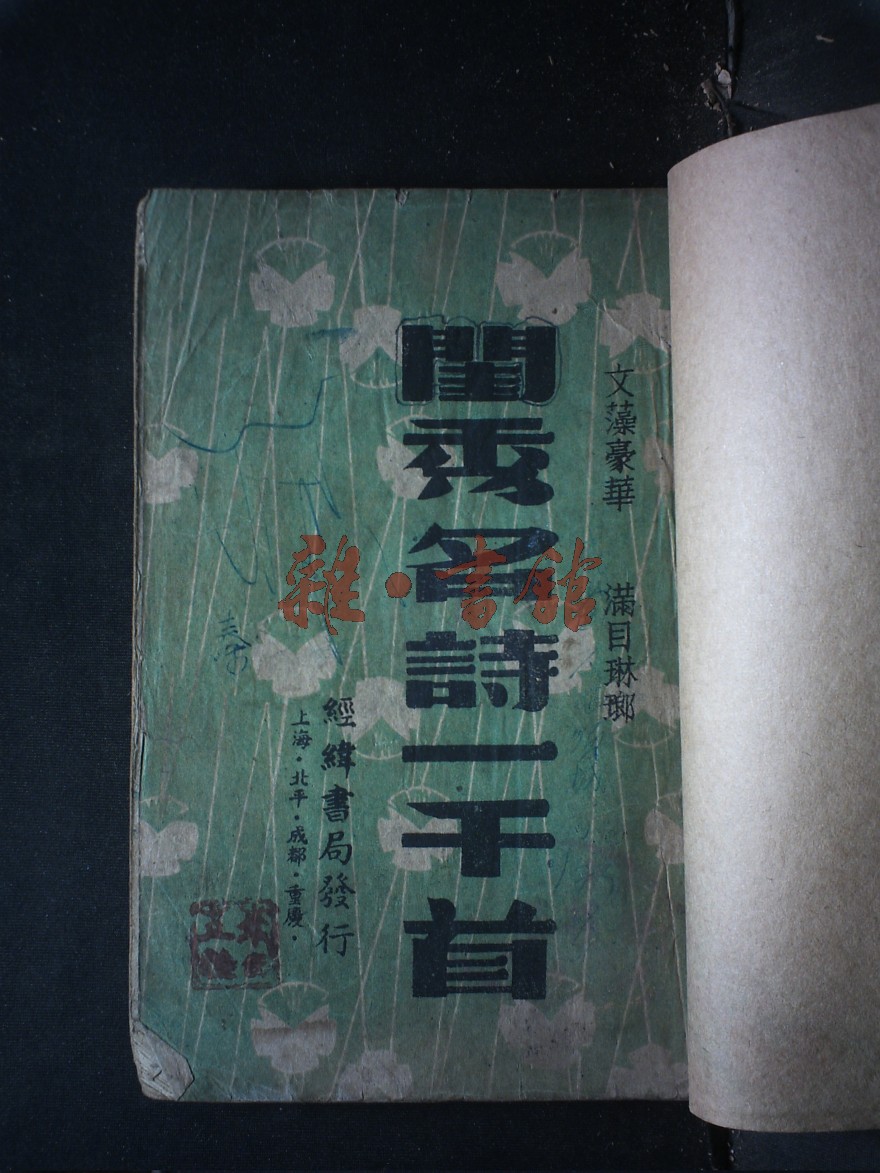 文藻豪華 滿目琳瑯
閨秀名詩一千首
經緯書局發行
上海·北平·成都·重慶·
雜·書館